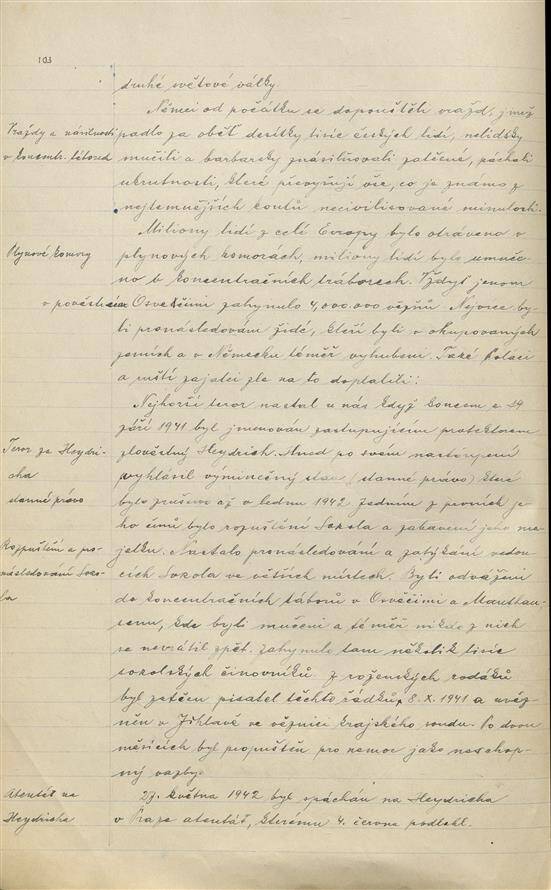 103
druhé světové války.
Němci od počátku se dopouštěli vražd, jimž
Vraždy a násilnosti
padlo za oběť desítky tisíc českých lidí, nelidsky
v koncentr. táborech
mučili a barbarsky znásilňovali zatčené, páchali
ukrutnosti, které převyšují vše, co je známo z
nejtemnějších koutů necivilisované minulosti.
Miliony lidí z celé Evropy bylo otráveno v
Plynové komory
plynových komorách, miliony lidí bylo umuče-
no v koncentračních táborech. Vždyť jenom
v pověstném Osvěčimi zahynulo 4,000.000 vězňů. Nejvíce by-
li pronásledováni židé, kteří byli v okupovaných
zemích a v Německu téměř vyhubeni. Také Poláci
a ruští zajatci zle na to doplatili:
Nejhorší teror nastal u nás když koncem
září 1941 byl jmenován zastupujícím protektorem
Teror za Heydri-
cha
zlověstný Heydrich. Hned po svém nastoupení
vyhlásil výminečný stav (stanné právo) které
stanné právo
bylo zrušeno až v lednu 1942. Jedním z prvních je-
ho činů bylo rozpuštění Sokola a zabavení jeho ma-
Rozpuštění a pro-
jetku. Nastalo pronásledování a zatýkání vedou-
následování Soko-
cích Sokola ve větších městech. Byli odváženi
la
do koncentračních táborů v Osvěčimi a Mauthau-
senu, kde byli mučeni a téměř nikdo z nich
se nevrátil zpět. Zahynulo tam několik tisíc
sokolských činovníků. Z roženských rodáků
byl zatčen pisatel těchto řádků, 8. X. 1941 a uvěz-
něn v Jihlavě ve věznici krajského soudu. Po dvou
měsících byl propuštěn pro nemoc jako neschop-
ný vazby.
Atentát na
Heydricha
27. května 1942 byl spáchán na Heydricha
v Praze atentát, kterému 4. června podlehl.